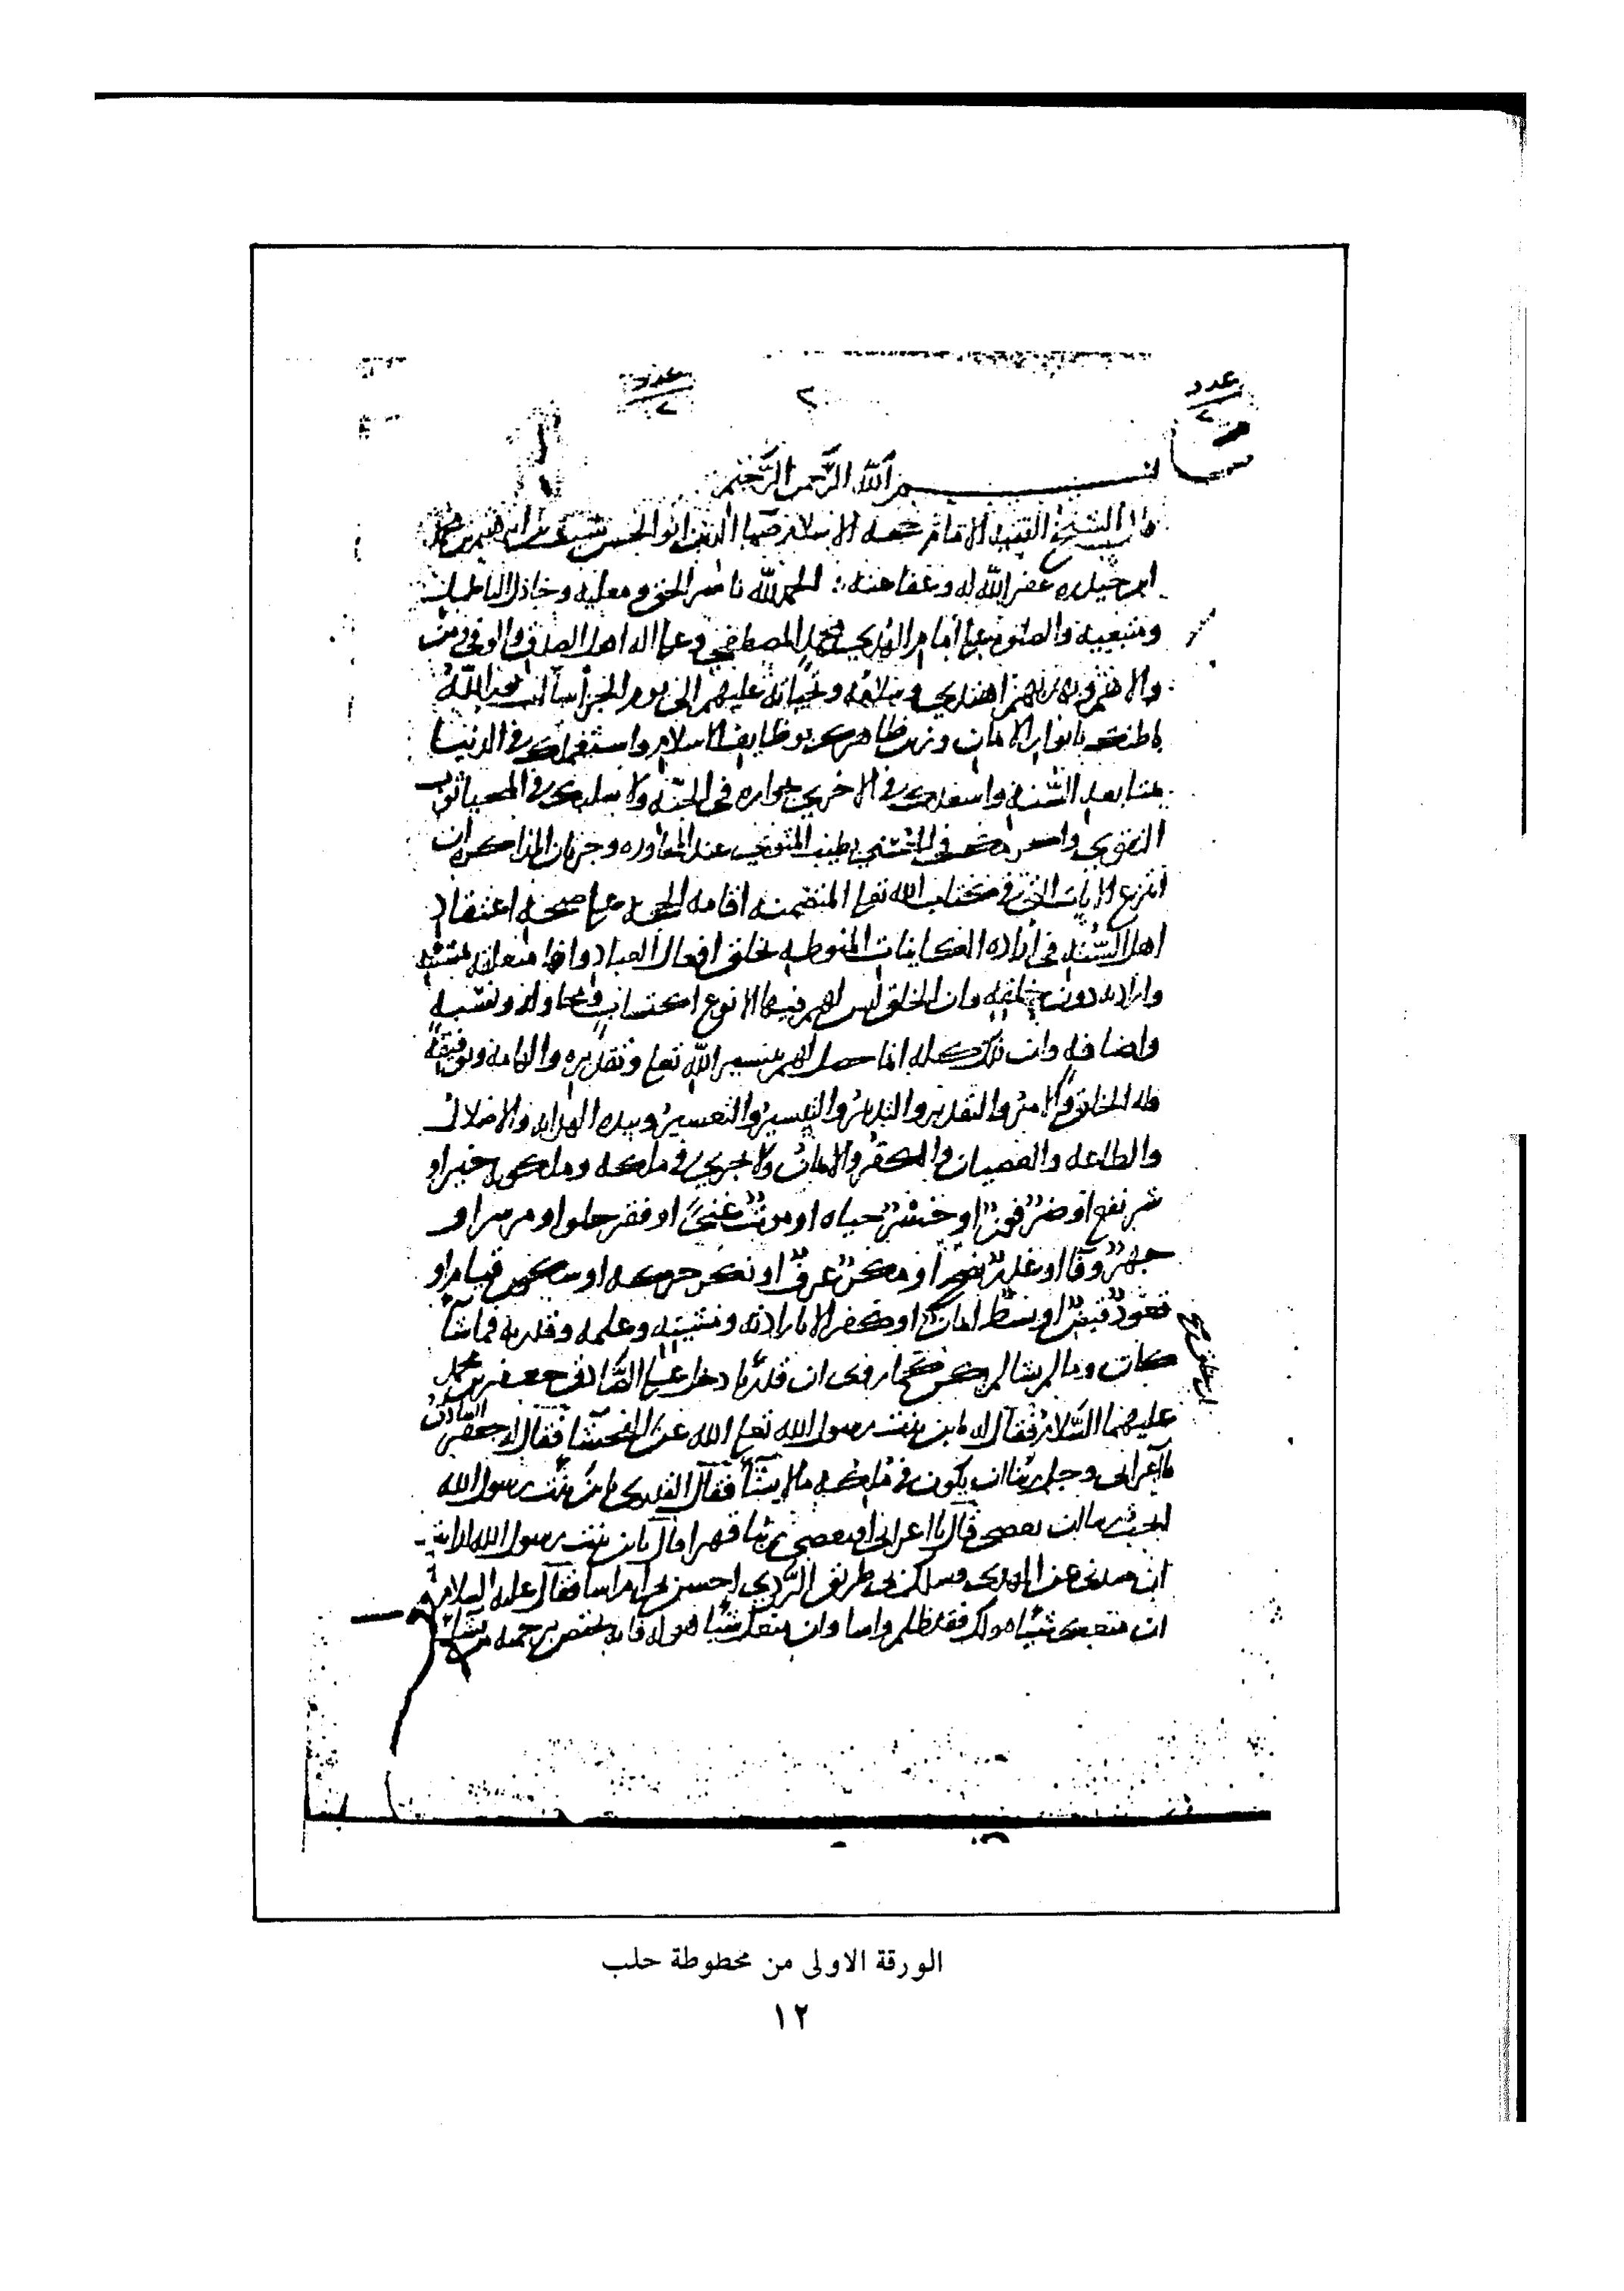 عدد
٢
٢
عدد
٢
بسم الله الرحمن الرحيم
قال الشيخ الفقيه الامام حجه الاسلام ضيا الدين ابو الحسن شيث بن ابرهيم بن محمد
ابن حيدره غفر الله له وعفا عنه الحمد لله ناصر الحق ومعليه وخاذل الباطل
ومتبعيه والصلوه على امام الهدى محمد المصطفى وعلى اله اهل الصدق والوفى ومن
والاهم وبهديهم اهتدى وسلامه وتحياته عليهم الى يوم الجزا سالت نور الله
باطنك بانوار الايمان وزين ظاهرك بوظايف الاسلام واستعملك في الدنيا
بمتابعه السنه واسعدك في الاخرى بجواره في الجنه ولا سلبك في المحيا ثوب
التقوى في عند المحاوره وجريان المذاكره ان
انتزع الايات التي في كتاب الله تعلى المتضمنه اقامه الحجه على صحه اعتقاد
اهل السنه في اراده الكاينات المنوطه بخلق افعال العباد وانها متعلقه بمشيئته
وارادته دون خلقه وان الخلق ليس لهم فيها الا نوع اكتساب ومحاوله ونسبه
واضافه وان ذلك كله انما حصل لهم بتيسير الله تعلى وتقديره والهامه وتوفيقه
فله الخلق والامر والتقدير والتدبير والتيسير والتعسير وبيده الهدايه والاضلال
والطاعه والعصيان والكفر والايمان ولا يجري في ملكه وملكوته خير او
شر نفع او ضر فوز او خسر حياه او موت غنى او فقر حلو او مر سر او
جهر وفا او غدر نصح او مكر عرف او نكر حركه او سكون قيام او
قعود قبض او بسط ايمان او كفر الا بارادته ومشيته وعلمه وقدرته فما شا
كان وما لم يشا لم يكن كما روى ان قدريا دخل على الصادق جعفر بن محمد
عليهما السلام فقال له يا بن بنت رسول الله تعلى الله عن الفحشا فقال له جعفر الصادق
يا اعرابى وجل ربنا ان يكون في ملكه ما لا يشا فقال القدرى يا بن بنت رسول الله
ايحب ربنا ان يعصى قال يا اعرابى افيعصى ربنا قهرا قال يا بن بنت رسول الله ارايت
ان صدنى عن الهدى وسلك بى طريق الردى احسن بى ام اسا فقال عليه السلام
ان منعك شيئا هو لك فقد ظلم واسا وان منعك شيئا هو له فانه يختص برحمته من يشا
الورقة الاولى من مخطوطة حلب
١٢